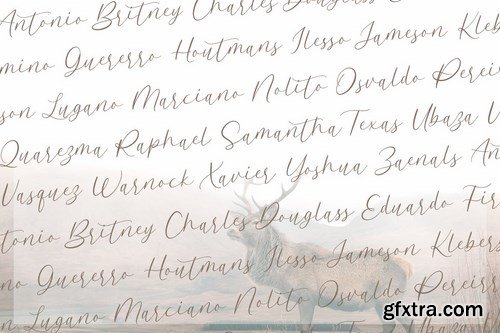 Antonio Britney Charles Douglass
mino Guererro Houtmans Ilesso Jameson Kleb
son Lugano Marciano Nolito Osvaldo Pereir
Quarezma Raphael Samantha Texas Ubaza
Vasquez Warnock Xavier Yoshua Zaenals An
ntonio Britney Charles Douglass Eduardo Fir
ino Guererro Houtmans Ilesso Jameson Klebers
n Lugano Marciano Nolito Osvaldo Pereirr
gfxtra.com